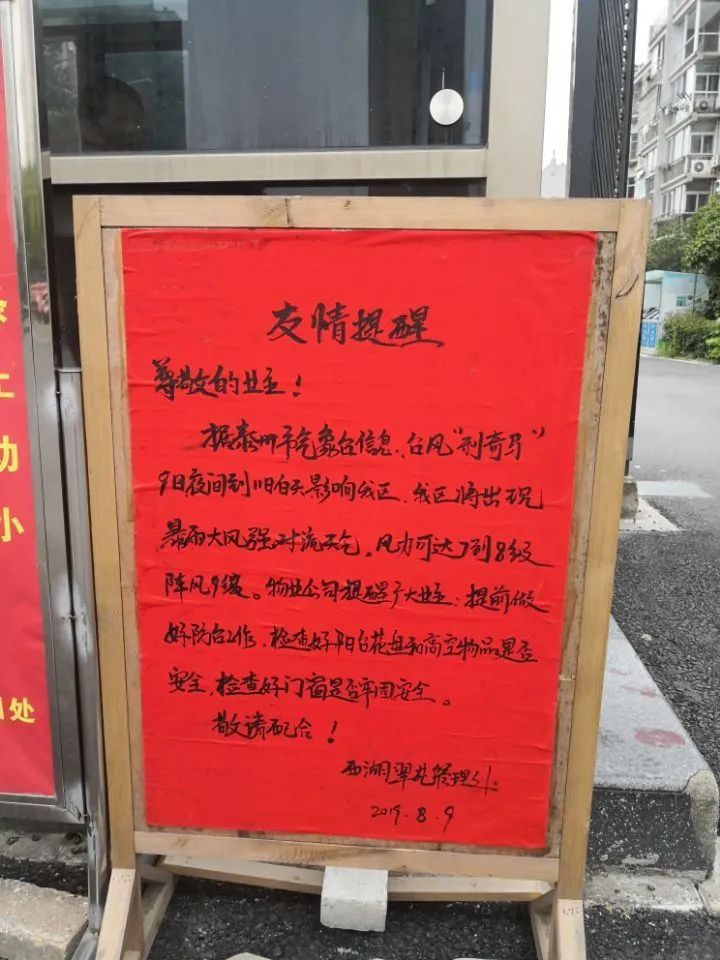 友情提醒
尊敬的业主！
据泰州市气象台信息、台风"利奇马"
9日夜间到11日白天影响我区、我区将出现
暴雨大风强对流天气，风力可达7到8级
阵风9级。物业公司提醒广大业主：提前做
好防台工作，检查好阳台花盆和高空物品是否
安全，检查好门窗是否牢固安全。
敬请配合！
西湖翠苑管理处.
2019.8.9
工
功
小
处